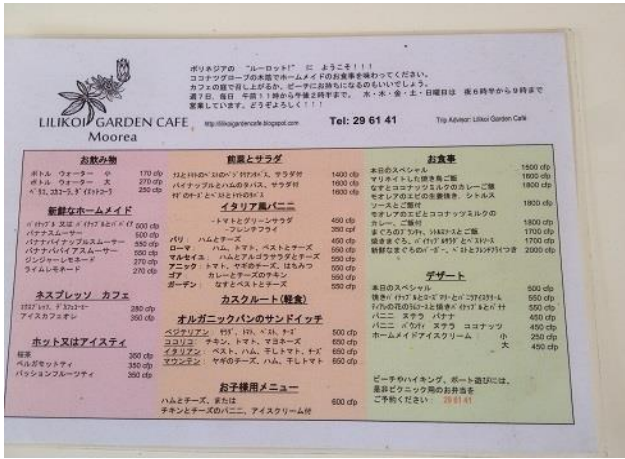 ポリネジアの “ルーロット!” に ようこそ!!!
ココナツグローブの木陰でホームメイドのお食事を味わってください。
カフェの庭で召し上がるか、ビーチにお持ちになるのもいいでしょう。
週7日、毎日 午前11時から午後2時半まで。 水・木・金・土・日曜日は 夜6時半から9時まで
営業しています。どうぞよろしく!!!
LILIKOI GARDEN CAFE
Moorea
http://lilikoigardencafe.blogspot.com
Tel: 29 61 41
Trip Advisor: Lilikoi Garden Café
お飲み物
ボトル ウォーター 小 170 cfp
ボトル ウォーター 大 270 cfp
250 cfp
新鮮なホームメイド
500 cfp
バナナスムーサー 500 cfp
バナナパイナップルスムーサー 550 cfp
バナナパパイアスムーサー 550 cfp
ジンジャーレモネード 270 cfp
ライムレモネード 270 cfp
ネスプレッソ カフェ
280 cfp
アイスカフェオレ 350 cfp
ホット又はアイスティ
桜茶 350 cfp
ベルガモットティ 350 cfp
パッションフルーツティ 350 cfp
前菜とサラダ
1400 cfp
パイナップルとハムのタパス、サラダ付 1600 cfp
1600 cfp
イタリア風パニニ
-トマトとグリーンサラダ 450 cfp
-フレンチフライ 350 cpf
パリ: ハムとチーズ 450 cfp
ローマ: ハム、トマト、ペストとチーズ 550 cfp
マルセイユ: ハムとアルゴラサラダとチーズ 550 cfp
アニック: トマト、ヤギのチーズ、はちみつ 550 cfp
ゴア: カレーとチーズのチキン 550 cfp
ガーデン: なすとペストとチーズ 550 cfp
カスクルート(軽食)
オルガニックパンのサンドイッチ
ベジテリアン: サラダ、トマト、ペスト、チーズ 500 cfp
ココリコ: チキン、トマト、マヨネーズ 650 cfp
イタリアン: ペスト、ハム、干しトマト、チーズ 650 cfp
マウンテン: ヤギのチーズ、ハム、干しトマト 650 cfp
お子様用メニュー
ハムとチーズ、または
チキンとチーズのパニニ、アイスクリーム付 600 cfp
お食事
本日のスペシャル 1500 cfp
マリネイトした焼き鳥ご飯 1600 cfp
なすとココナッツミルクのカレーご飯 1600 cfp
モオレアのエビの生姜焼き、シトルス
ソースとご飯付 1800 cfp
モオレアのエビとココナッツミルクの
カレー、ご飯付 1800 cfp
1700 cfp
1700 cfp
2000 cfp
デザート
本日のスペシャル 500 cfp
550 cfp
550 cfp
パニニ ヌテラ バナナ 450 cfp
パニニ バウンティ ヌテラ ココナッツ 450 cfp
ホームメイドアイスクリーム 小 250 cfp
大 450 cfp
ビーチやハイキング、ボート遊びには、
是非ピクニック用のお弁当を
ご予約ください 29 61 41